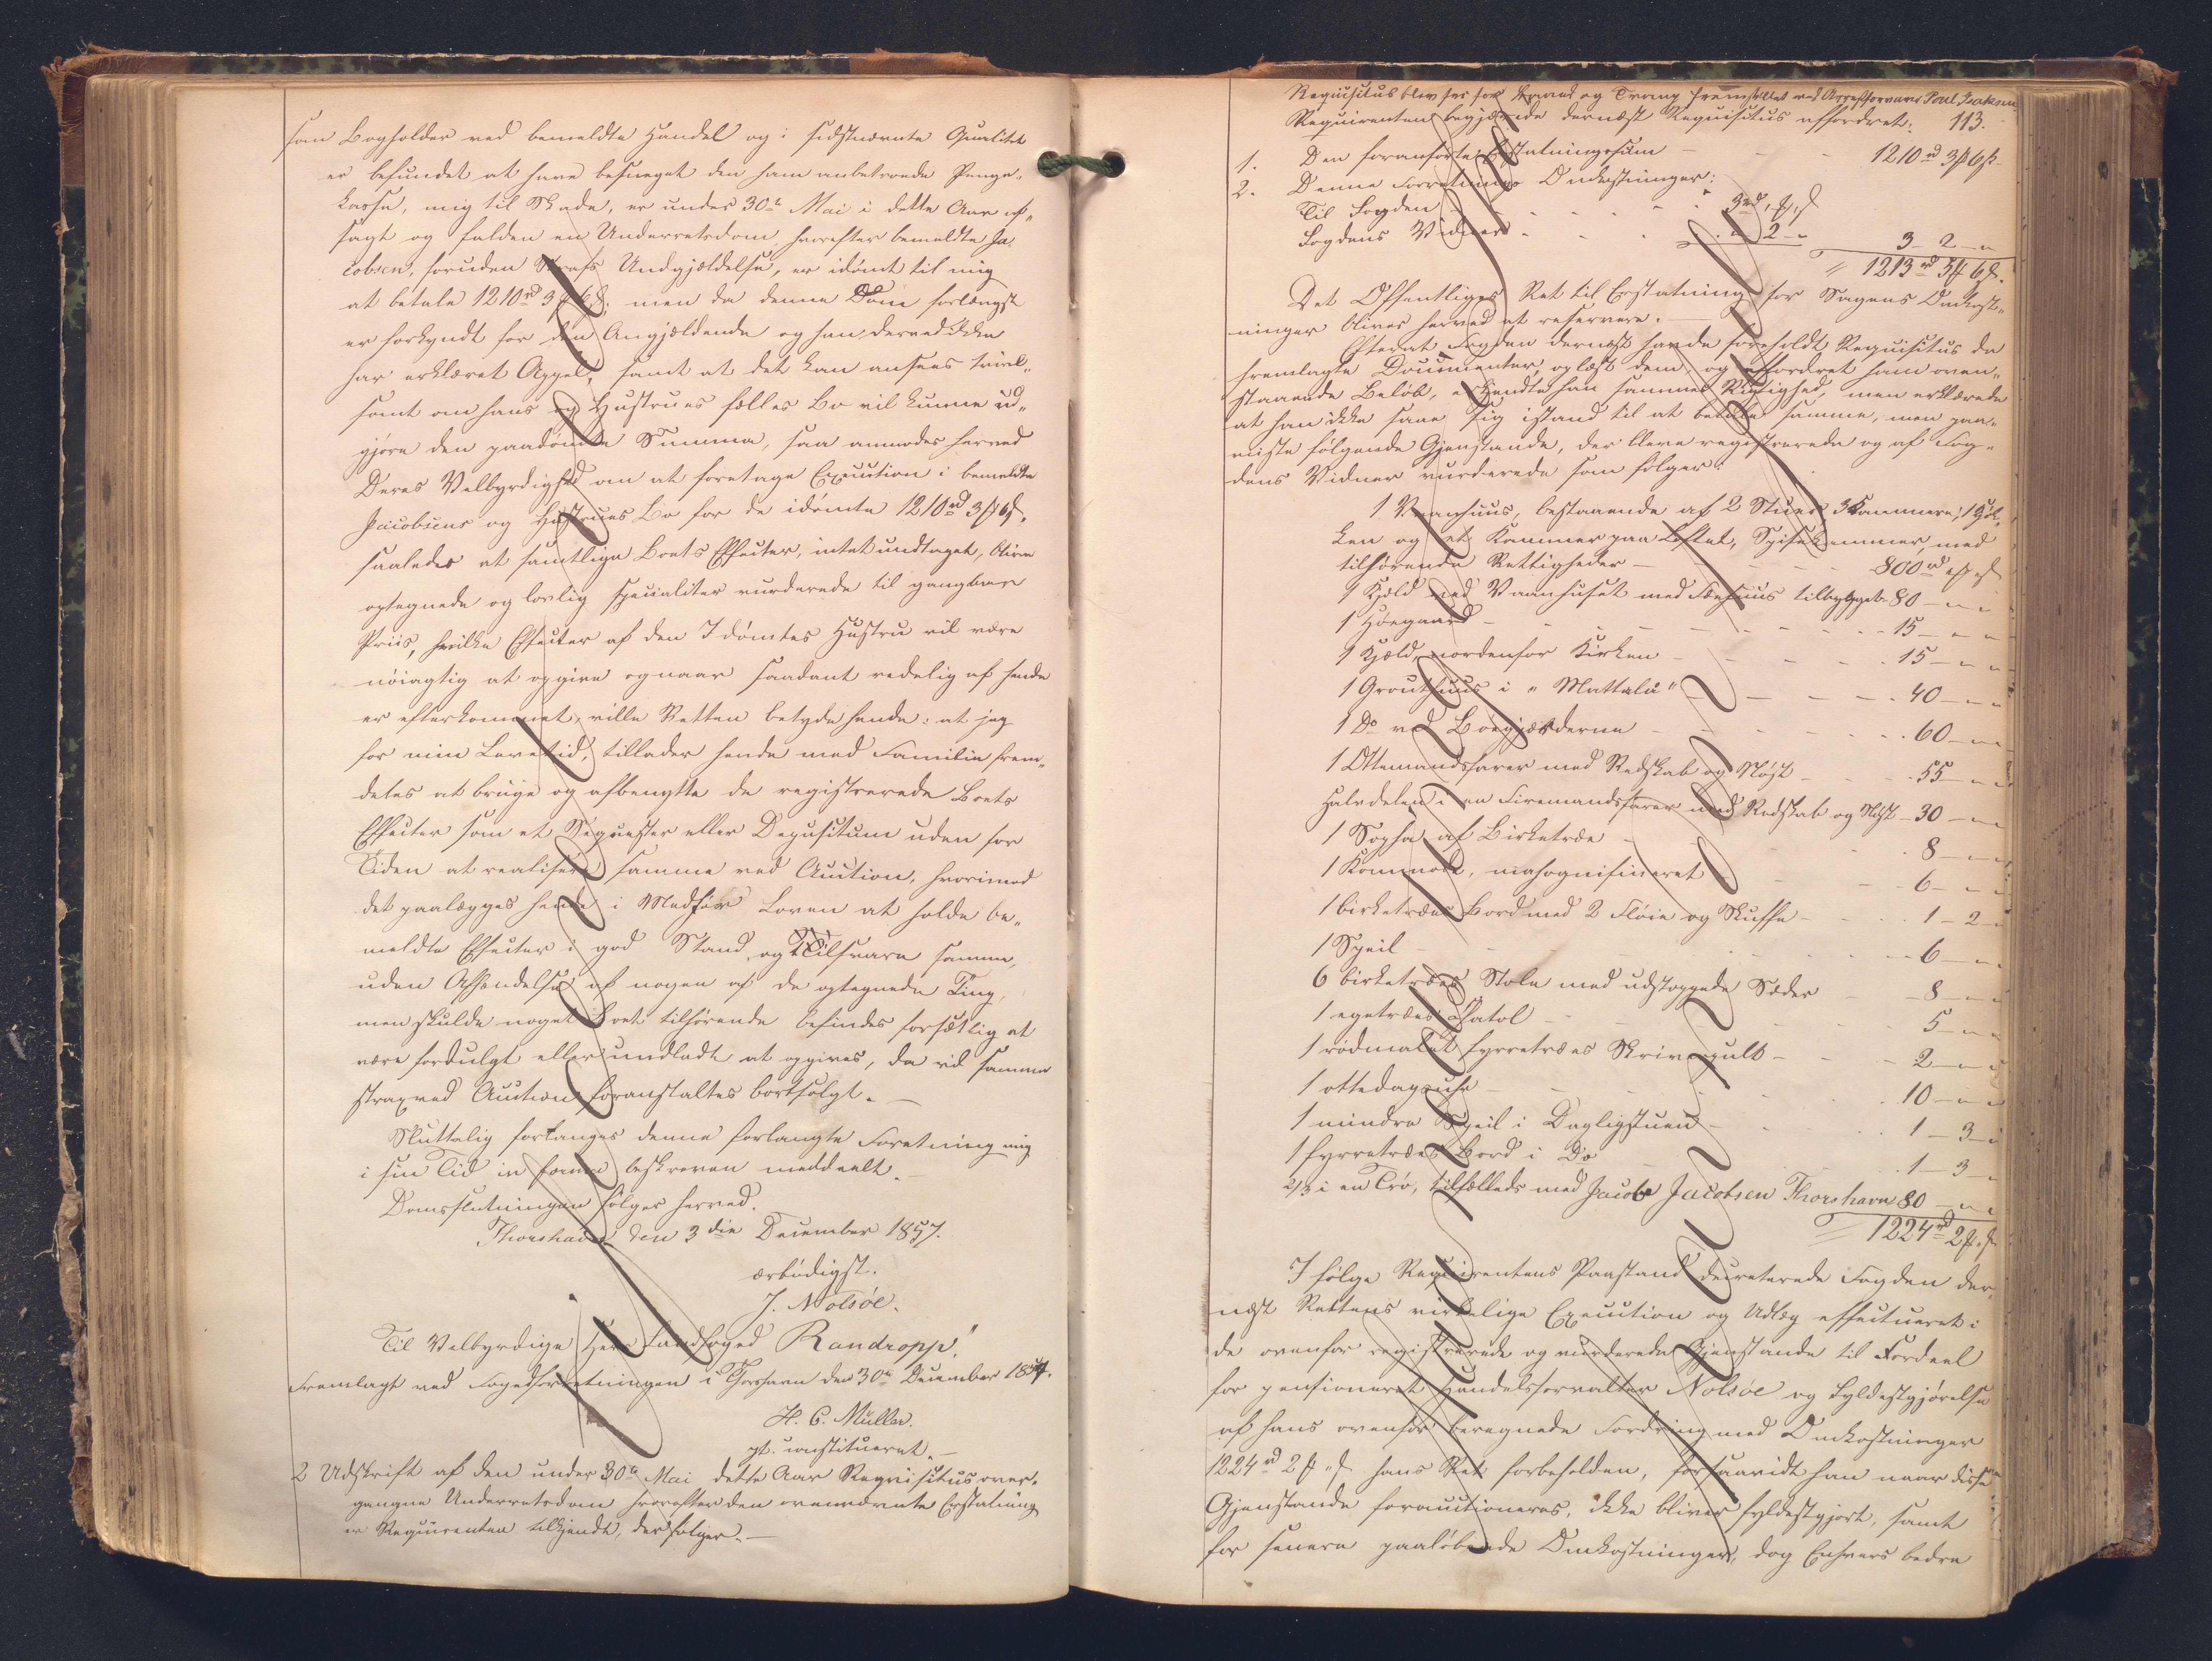 som Bogholder ved bemeldte Handel og i sidstnævnte Qualitet
er befundet at have besveget den ham anbetroede Penge-
kasse, mig til Skade, er under 30te Mai i dette Aar af-
sagt og falden en Underretsdom, hvorefter bemeldte Ja-
cobsen, foruden Strafs Undgjældelse, er idømt til mig
at betale 1210 rd 3 ℳ 6 ß. men da denne Dom forlængst
er forkyndt for den Angjældende og han derved ikke
har erklæret Appel, samt at det kan ansees tvivl-
somt om hans og Hustrues fælles Bo vil kunne ud-
gjøre den paadømte Summa, saa anmodes herved
Deres Velbyrdighed om at foretage Execution i bemeldte
Jacobsens og Hustrues Bo for de idømte 1210 rd 3 ℳ 6 ß,
saaledes at samtlige Boets Effecter, intet undtaget, blive
optegnede og lovlig specialiter vurderede til gangbare
Priis, hvilke Effecter af den Idømtes Hustru vil være
nøiagtig at opgive og naar saadant redelig af hende
er efterkommet, ville Retten betyde hende: at jeg
for min Levetid, tillader hende med Familie frem-
deles at bruge og afbenytte de registrerede Boets
Effecter som et Sequester eller Depositum uden for
Tiden at realisere samme ved Auction, hvorimod
det paalægges hende i Medfør Loven at holde be-
meldte Effecter i god Stand, og tilsvare samme,
uden Afhændelse af nogen af de optegnede Ting,
men skulde noget Boet tilhørende befindes forsætlig at
være fordulgt eller undladt at opgives, da vil samme
strax ved Auction foranstaltes bortsolgt. —
Sluttelig forlanges denne forlangte Forretning mig
i sin Tid in forma beskreven meddeelt. —
Domsslutningen følger herved.
Thorshavn den 3 die December 1857.
ærbødigst.
J. Nolsøe.
Til Velbyrdige Herr Landfoged Randropp."
Fremlagt ved Fogedforretningen i Thorshavn den 30te December 1857.
H. C. Müller.
pt. constitueret. —
2 Udskrift af den under 30te Mai dette Aar Requisitus over-
gangne Underretsdom hvorefter den ovennævnte Erstatning
er Requirenten tilkjendt, der følger. —
Requisitus blev løs for Baand og Tvang fremstillet ved Arrestforvarer Poul Isaksen
Requirenten begjærede dernæst Requisitus affordret: 113.
1. Den foranførte Erstatningssum — 1210 rd 3 ℳ 6 ß
2. Denne Forretnings Omkostninger:
Til Fogden - - - 3 rd " ℳ " ß
Fogdens Vidner - - - " 2 - " 3 - 2 - "
= 1213 rd 5 ℳ 6 ß.
Det Offentliges Ret til Erstatning for Sagens Omkost-
ninger bliver herved at reservere. —
Efterat Fogden dernæst havde foreholdt Requisitus de
fremlagte Documenter, oplæst dem, og affordret ham oven-
staaende Beløb, erkjendte han sammes Rigtighed, men erklærede
at han ikke saae sig istand til at betale samme, men paa-
viste følgende Gjenstande, der bleve registrerede og af Fog-
dens Vidner vurderede som følger:
1 Vaanhuus, bestaaende af 2 Stuer 3 Kammere, 1 Kjøk-
ken og et Kammer paa Loftet, Spisekammer, med
tilhørende Rettigheder — 800 rd " ℳ " ß
1 Hjeld ved Vaanhuset med Fæhuus tilbygget 80 - " "
1 Høegaard - - - 15 - " "
1 Hjeld, nordenfor Kirken - - - 15 - " "
1 Grouthuus i " Mattalå " - - - 40 - " "
1 Do ved Bøegjærderne - - - 60 - " "
1 Ottemandsfarer med Redskab og Nøst - - - 55 - " "
Halvdelen i en Firemandsfarer med Redskab og Nøst - 30 - " "
1 Sopha af Birketræe - - - 8 - " "
1 Kommode, mahognifineret - - - 6 - " "
1 birketræes Bord med 2 Fløie og Skuffe - - - 1 - 2 -
1 Speil - - - 6 - " "
6 birketræes Stole med udstoppede Sæder - 8 - " "
1 egetræes Chatol - - - 5 - " "
1 rødmalet fyrretræes Skrivepult - - - 2 - " "
1 ottedagsuhr - - - 10 - " "
1 mindre Speil i Dagligstuen - - - 1 - 3 - "
1 fyrretræes Bord i Do - - - 1 - 3 -
2/3 i en Trø, tilfælleds med Jacob Jacobsen Thorshavn 80 - " "
= 1224 rd 2 ℳ " ß
I følge Requirentens Paastand decreterede Fogden der-
næst Rettens virkelige Execution og Udlæg effectueret i
de ovenfor registrerede og vurderede Gjenstande til Fordeel
for pensioneret Handelsforvalter Nolsøe og Fyldestgjørelse
af hans ovenfor beregnede Fordring med Omkostninger
1224 rd 2 ℳ " ß hans Ret forbeholden, forsaavidt han naar disse
Gjenstande forauctioneres, ikke bliver fyldestgjort, samt
for senere paaløbende Omkostninger, dog Enhvers bedre